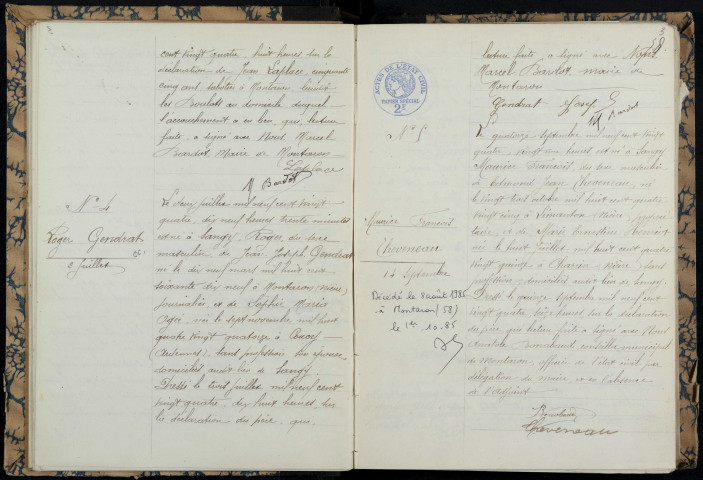 cent vingt quatre, huit heures sur la
déclaration de Jean Laplace, cinquante
cinq ans, à Montaron lieudit
les Boulats au domicile duquel
l'accouchement a eu lieu, qui, lecture
faite, a signé avec Nous, Marcel
Bardot, Maire de Montaron
Laplace
M Bardot
N° 4
Roger Gendrat
2 Juillet
Le deux juillet mil neuf cent vingt
quatre, dix neuf heures trente minutes
est né à Sangy, Roger, du sexe
masculin de Jean Joseph Gendrat
né le dix neuf mars mil huit cent
soixante dix neuf à Montaron (Nièvre)
journalier, et de Sophie Marie
née le sept novembre mil huit
cent quatre vingt quatorze à
(Ardennes), sans profession son épouse
domiciliés audit lieu de Sangy.
Dressé le trois juillet mil neuf cent
vingt quatre, dix huit heures, sur
la déclaration du père, qui,
lecture faite a signé avec Nous
Marcel Bardot, maire de
Montaron
Gendrat Josef
M Bardot
ACTES DE L'ÉTAT CIVIL
PAPIER SPÉCIAL
2F
N° 5
Maurice François
Cheveneau
14 Septembre
Décédé le 8 août 1985
à Montaron (58)
le 1er 10-85
Le quatorze septembre mil neuf cent vingt
quatre, vingt heures est né à Sangy
Maurice François, du sexe masculin
de Edmond Jean Cheveneau, né
le vingt trois octobre mil huit cent quatre
vingt cinq à Limanton (Nièvre),
et de Marie Ernestine
née le huit juillet mil huit cent quatre
vingt quinze à (Nièvre) sans
profession, domiciliés audit lieu de Sangy.
Dressé le quinze septembre mil neuf cent
vingt quatre, seize heures, sur la déclaration
du père, qui lecture faite a signé avec Nous
conseiller municipal
de Montaron, officier de l'état civil, par
délégation du maire et en l'absence
de l'adjoint
Cheveneau